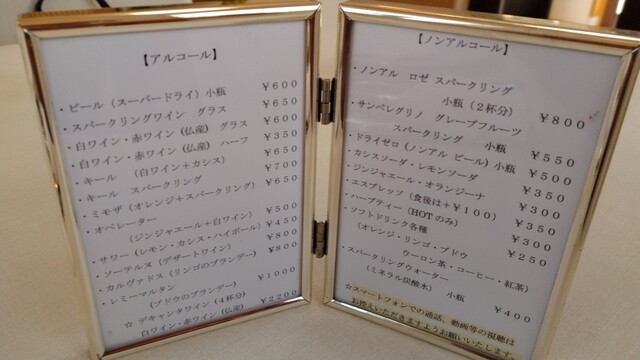 【アルコール】
・ビール（スーパードライ）小瓶 ￥６００
・スパークリングワイン グラス ￥６５０
・白ワイン・赤ワイン（仏産） グラス ￥６００
・白ワイン・赤ワイン（仏産） ハーフ ￥３５０
・キール （白ワイン＋カシス） ￥６５０
・キール スパークリング ￥７００
・ミモザ（オレンジ＋スパークリング） ￥６５０
・オペレーター
（ジンジャエール＋白ワイン） ￥５００
・サワー（レモン・カシス・ハイボール） ￥４５０
・ソーテルヌ（デザートワイン） ￥８００
・カルヴァドス（リンゴのブランデー） ￥８００
・レミーマルタン
（ブドウのブランデー） ￥１０００
☆ デキャンタワイン（４杯分）
白ワイン・赤ワイン（仏産） ￥２２００
【ノンアルコール】
・ノンアル ロゼ スパークリング
小瓶（２杯分） ￥８００
・サンペレグリノ グレープフルーツ
スパークリング 小瓶 ￥５５０
・ドライゼロ（ノンアル ビール）小瓶 ￥５００
・カシスソーダ・レモンソーダ ￥３５０
・ジンジャエール・オランジーナ ￥３００
・エスプレッソ（食後は＋￥１００） ￥３５０
・ハーブティー（HOTのみ） ￥３００
・ソフトドリンク各種 ￥２５０
（オレンジ・リンゴ・ブドウ
ウーロン茶・コーヒー・紅茶）
・スパークリングウォーター
（ミネラル炭酸水） 小瓶 ￥４００
☆スマートフォンでの通話、動画等の視聴は
お控えいただきますようお願いいたします。